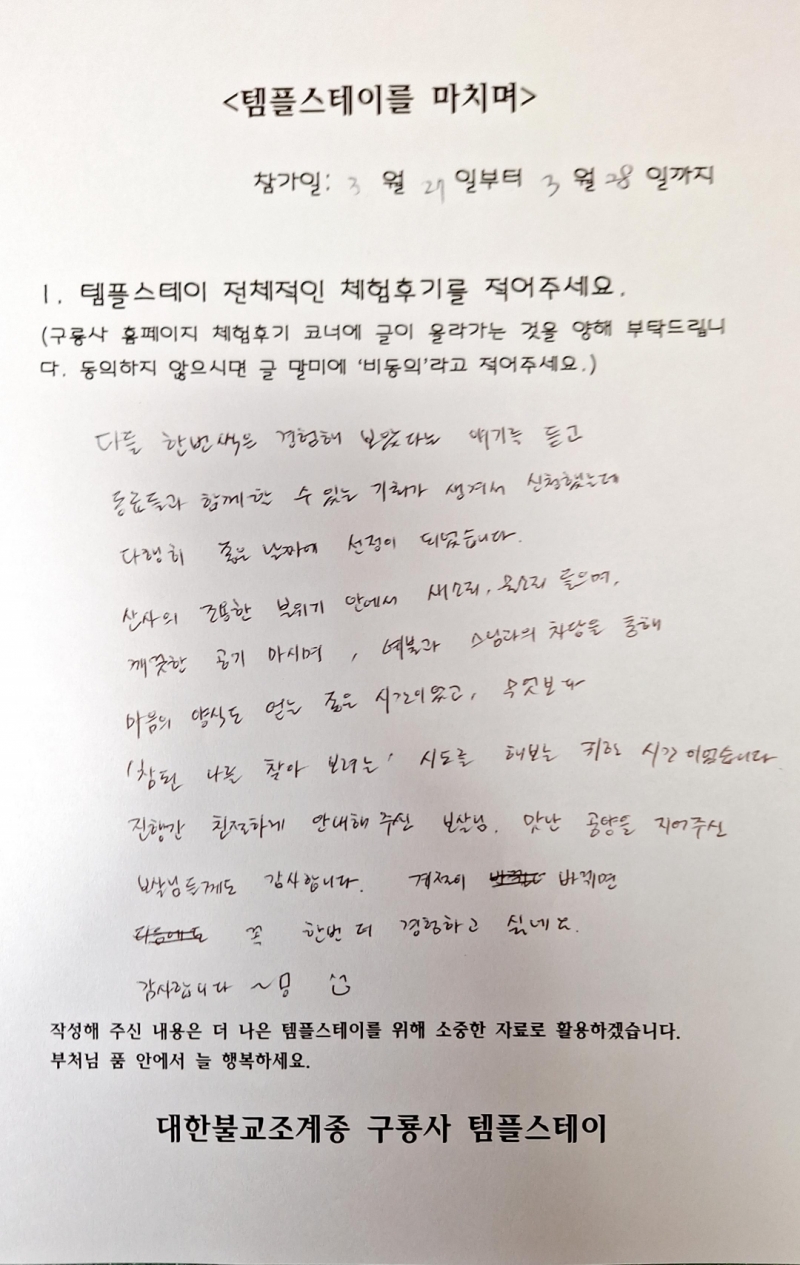 <템플스테이를 마치며>
참가일: 3 월 27 일부터 3 월 28 일까지
1. 템플스테이 전체적인 체험후기를 적어주세요.
(구룡사 홈페이지 체험후기 코너에 글이 올라가는 것을 양해 부탁드립니
다. 동의하지 않으시면 글 말미에 '비동의'라고 적어주세요.)
다들 한번씩은 경험해 보았다는 얘기를 듣고
동료들과 함께할 수 있는 기회가 생겨서 신청했는데
다행히 좋은 날짜에 선정이 되었습니다.
산사의 조용한 분위기 안에서 새소리, 물소리 들으며,
깨끗한 공기 마시며, 예불과 스님과의 차담을 통해
마음의 양식도 얻는 좋은 시간이었고, 무엇보다
'참된 나를 찾아 보려는' 시도를 해보는 귀한 시간이었습니다.
진행간 친절하게 안내해 주신 보살님, 맛난 공양을 지어주신
보살님들께도 감사합니다. 계절이 바뀌면
꼭 한번 더 경험하고 싶네요.
감사합니다 ~
작성해 주신 내용은 더 나은 템플스테이를 위해 소중한 자료로 활용하겠습니다.
부처님 품 안에서 늘 행복하세요.
대한불교조계종 구룡사 템플스테이